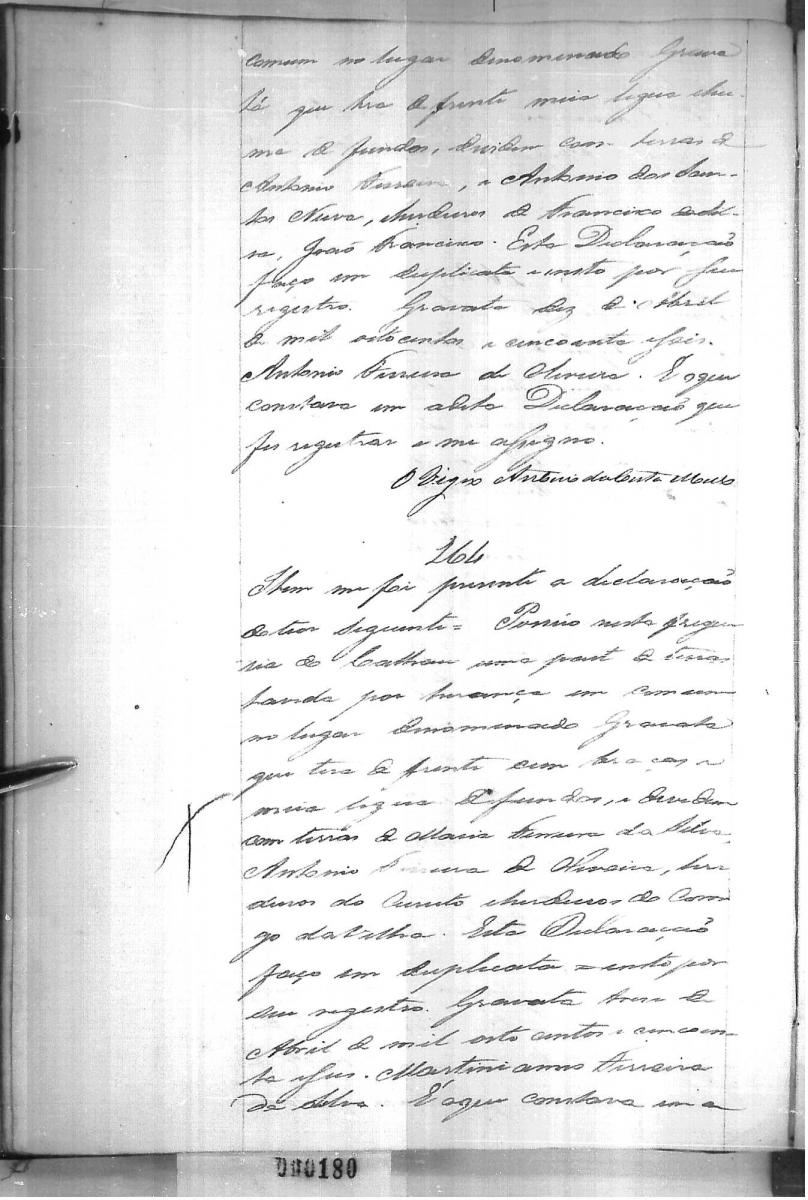 comum no lugar denomenado Grava
tá que tera de frente meia legua e hu-
ma de fundos, dividem com terras de
Antonio Ferreira, e Antonio dos San-
tos Neiva, herdeiros de Francisco da Sil-
va, João Francisco. Esta Declaração
faço em duplicata e insto por seu
registro. Gravata dez de Abril
de mil oitocentos e cincoenta e seis.
Antonio Ferreira de Oliveira. É o que
constava em a dita Declaração, que
fis registrar e me assigno.
O Vigro Antonio da Costa
264
Item me foi presente a declaração
do teor seguinte = Possuo nesta fregue
sia do uma parte de terras
havida por herança em comum
no lugar denomenado Gravata
que tera de frente cem braças e
meia legua de fundos, e dividem
com terras de Maria Ferreira da Silva,
Antonio Ferreira de Oliveira, her
deiros do e herdeiros do Corre
go da Velha. Esta Declaração
faço em duplicata = insto por
seu registro. Gravata treze de
Abril de mil oito centos e cincoen-
ta e seis. Martinianno Ferreira
da Silva. É o que constava em a
000180